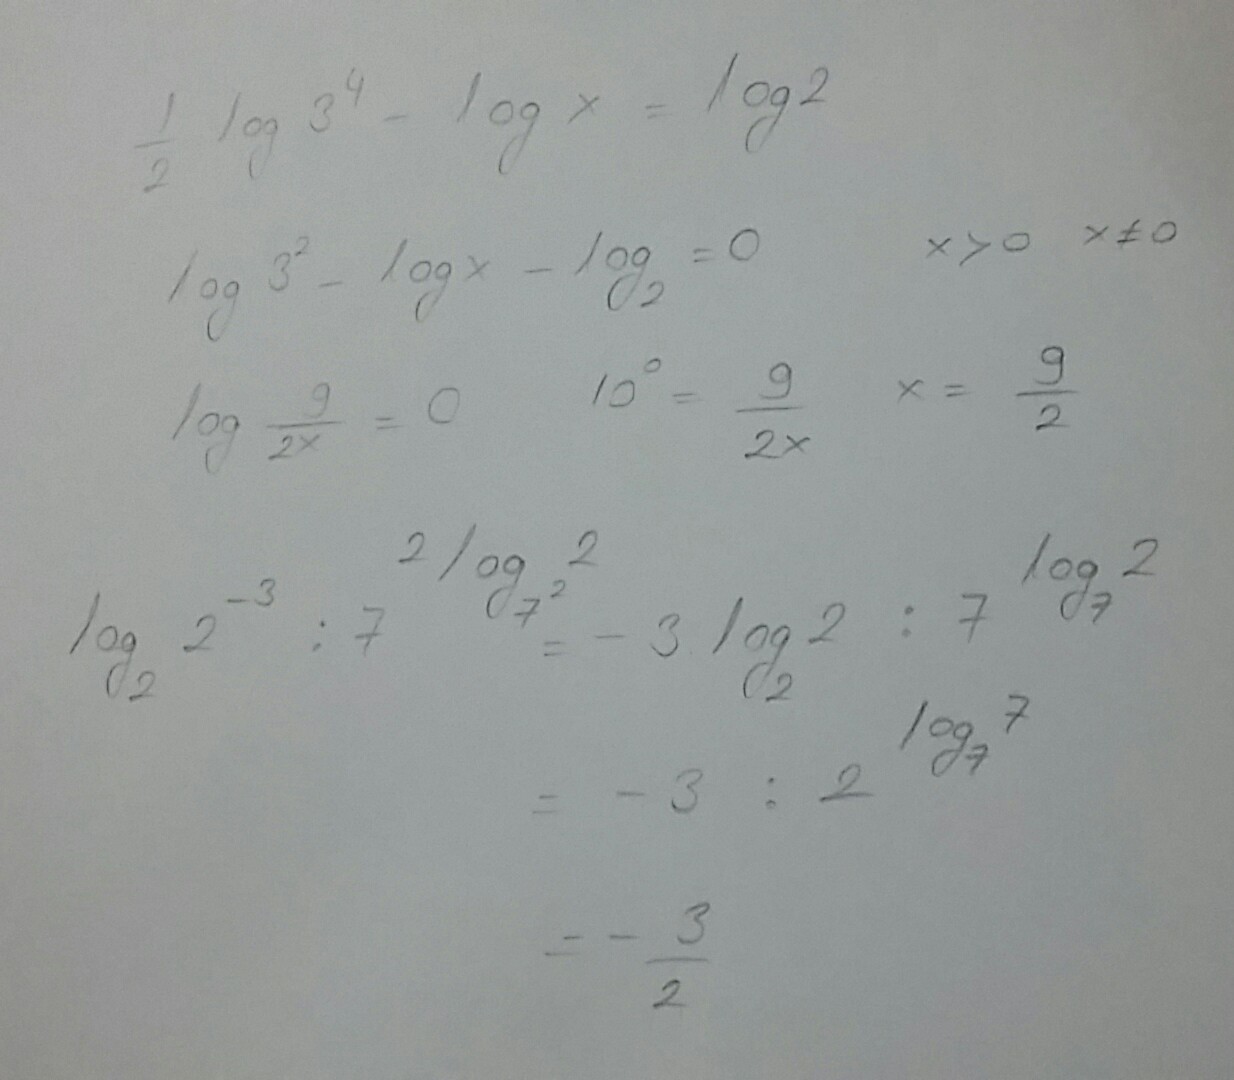 1/2 log 3⁴ - log x = log 2
log 3² - log x - log₂ = 0 x > 0 x ≠ 0
log 9/2x = 0 10⁰ = 9/2x x = 9/2
log₂ 2⁻³ : 7^(2 log_(7²) 2) = -3 log₂ 2 : 7^(log₇ 2)
= -3 : 2^(log₇ 7)
= - 3/2